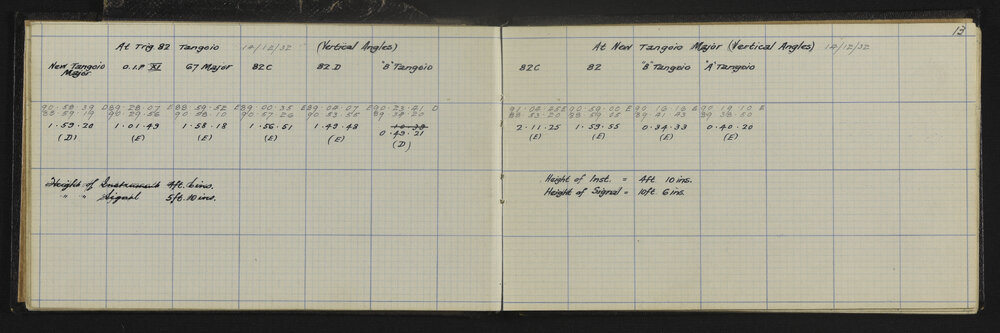 At Trig 82 Tangoio 14/12/32 (Vertical Angles)
New Tangoio Major O.I.P XI 67 Major 82C 82.D "B" Tangoio
90.58.39 D 89.28.07 E 88.59.52 E 89.00.35 E 89.04.07 E 90.23.41 D
88.59.19 90.29.56 90.58.10 90.57.26 90.53.55 89.34.20
1.59.20 1.01.49 1.58.18 1.56.51 1.49.48
0.49.21
(D) (E) (E) (E) (E) (D)
Height of Instrument 4ft. 6 ins.
" " Signal 5ft. 10 ins.
13
At New Tangoio Major (Vertical Angles) 14/12/32
82C 82 "B" Tangoio "A" Tangoio
91.04.45 E 90.59.00 E 90.16.16 E 90.19.10 E
88.53.20 88.59.05 89.41.43 89.38.50
2.11.25 1.59.55 0.34.33 0.40.20
(E) (E) (E) (E)
Height of Inst. = 4ft 10 ins.
Height of Signal = 10ft 6 ins.